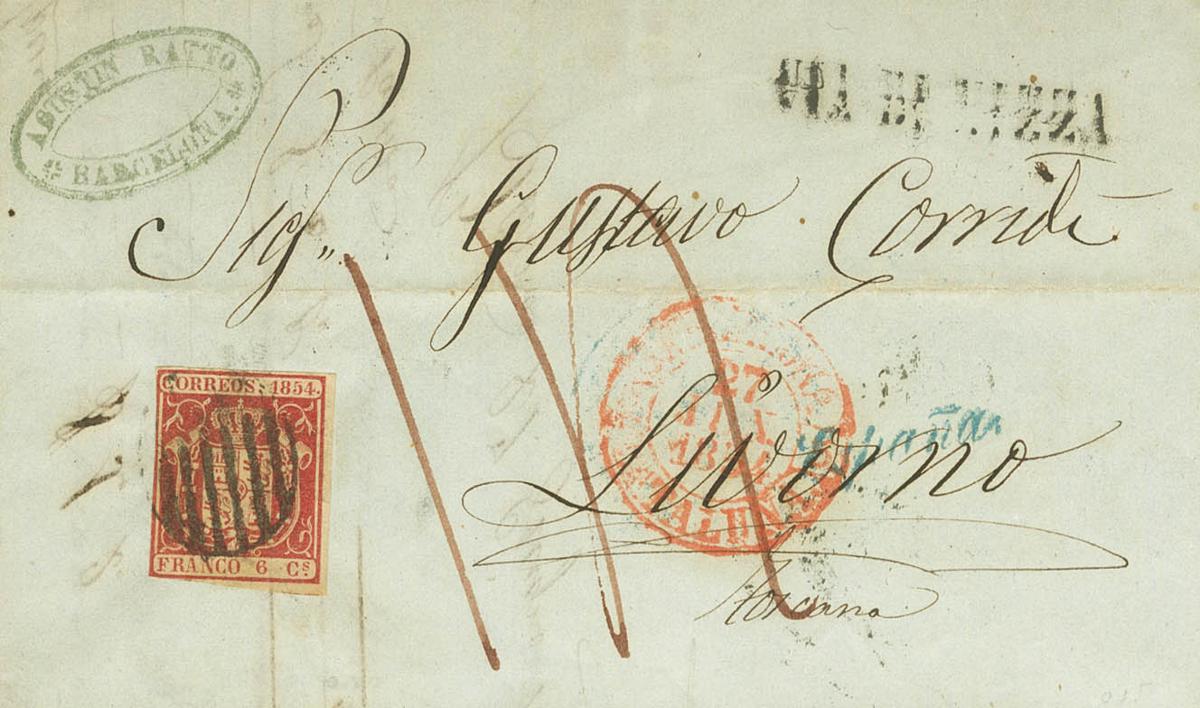 AGUSTIN RATTO
* BARCELONA. *
VIA DI NIZZA
Sigr. Gustavo Corridi
CORREOS. 1854.
FRANCO 6 Cs
27
España
Livorno
Toscana